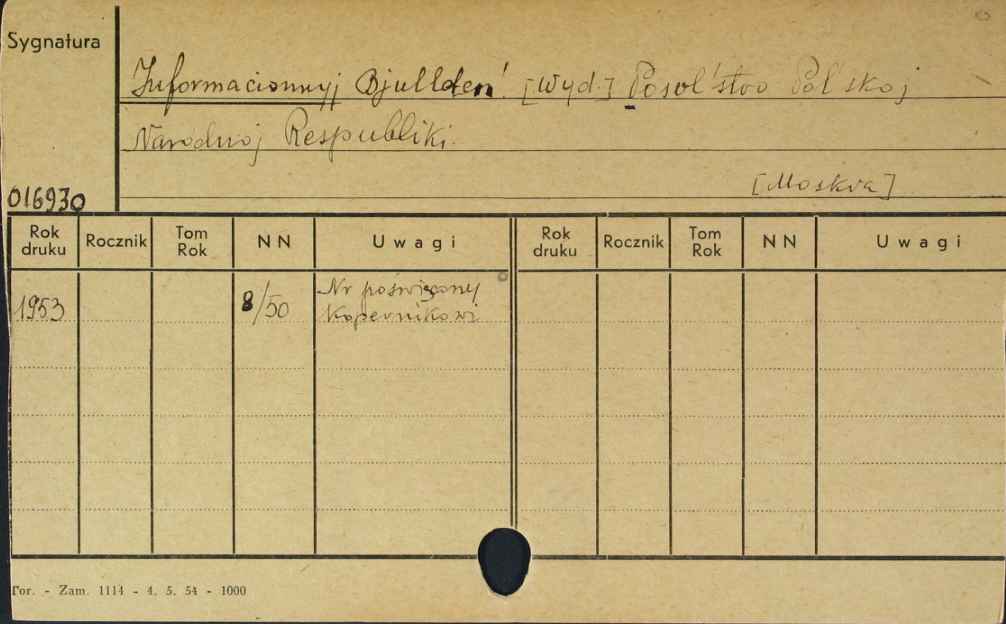 Sygnatura
Informacionnyj Bjulleten' [Wyd.] Posol'stvo Pol'skoj
Narodnoj Respubliki.
[Moskva]
016930
Rok druku Rocznik Tom Rok NN Uwagi Rok druku Rocznik Tom Rok NN Uwagi
1953 8/50 Nr poświęcony
Kopernikowi
Tor. - Zam. 1114 - 4. 5. 54 - 1000